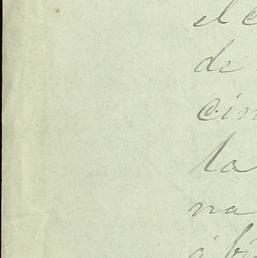 el c
de
cin
la
na
á bi